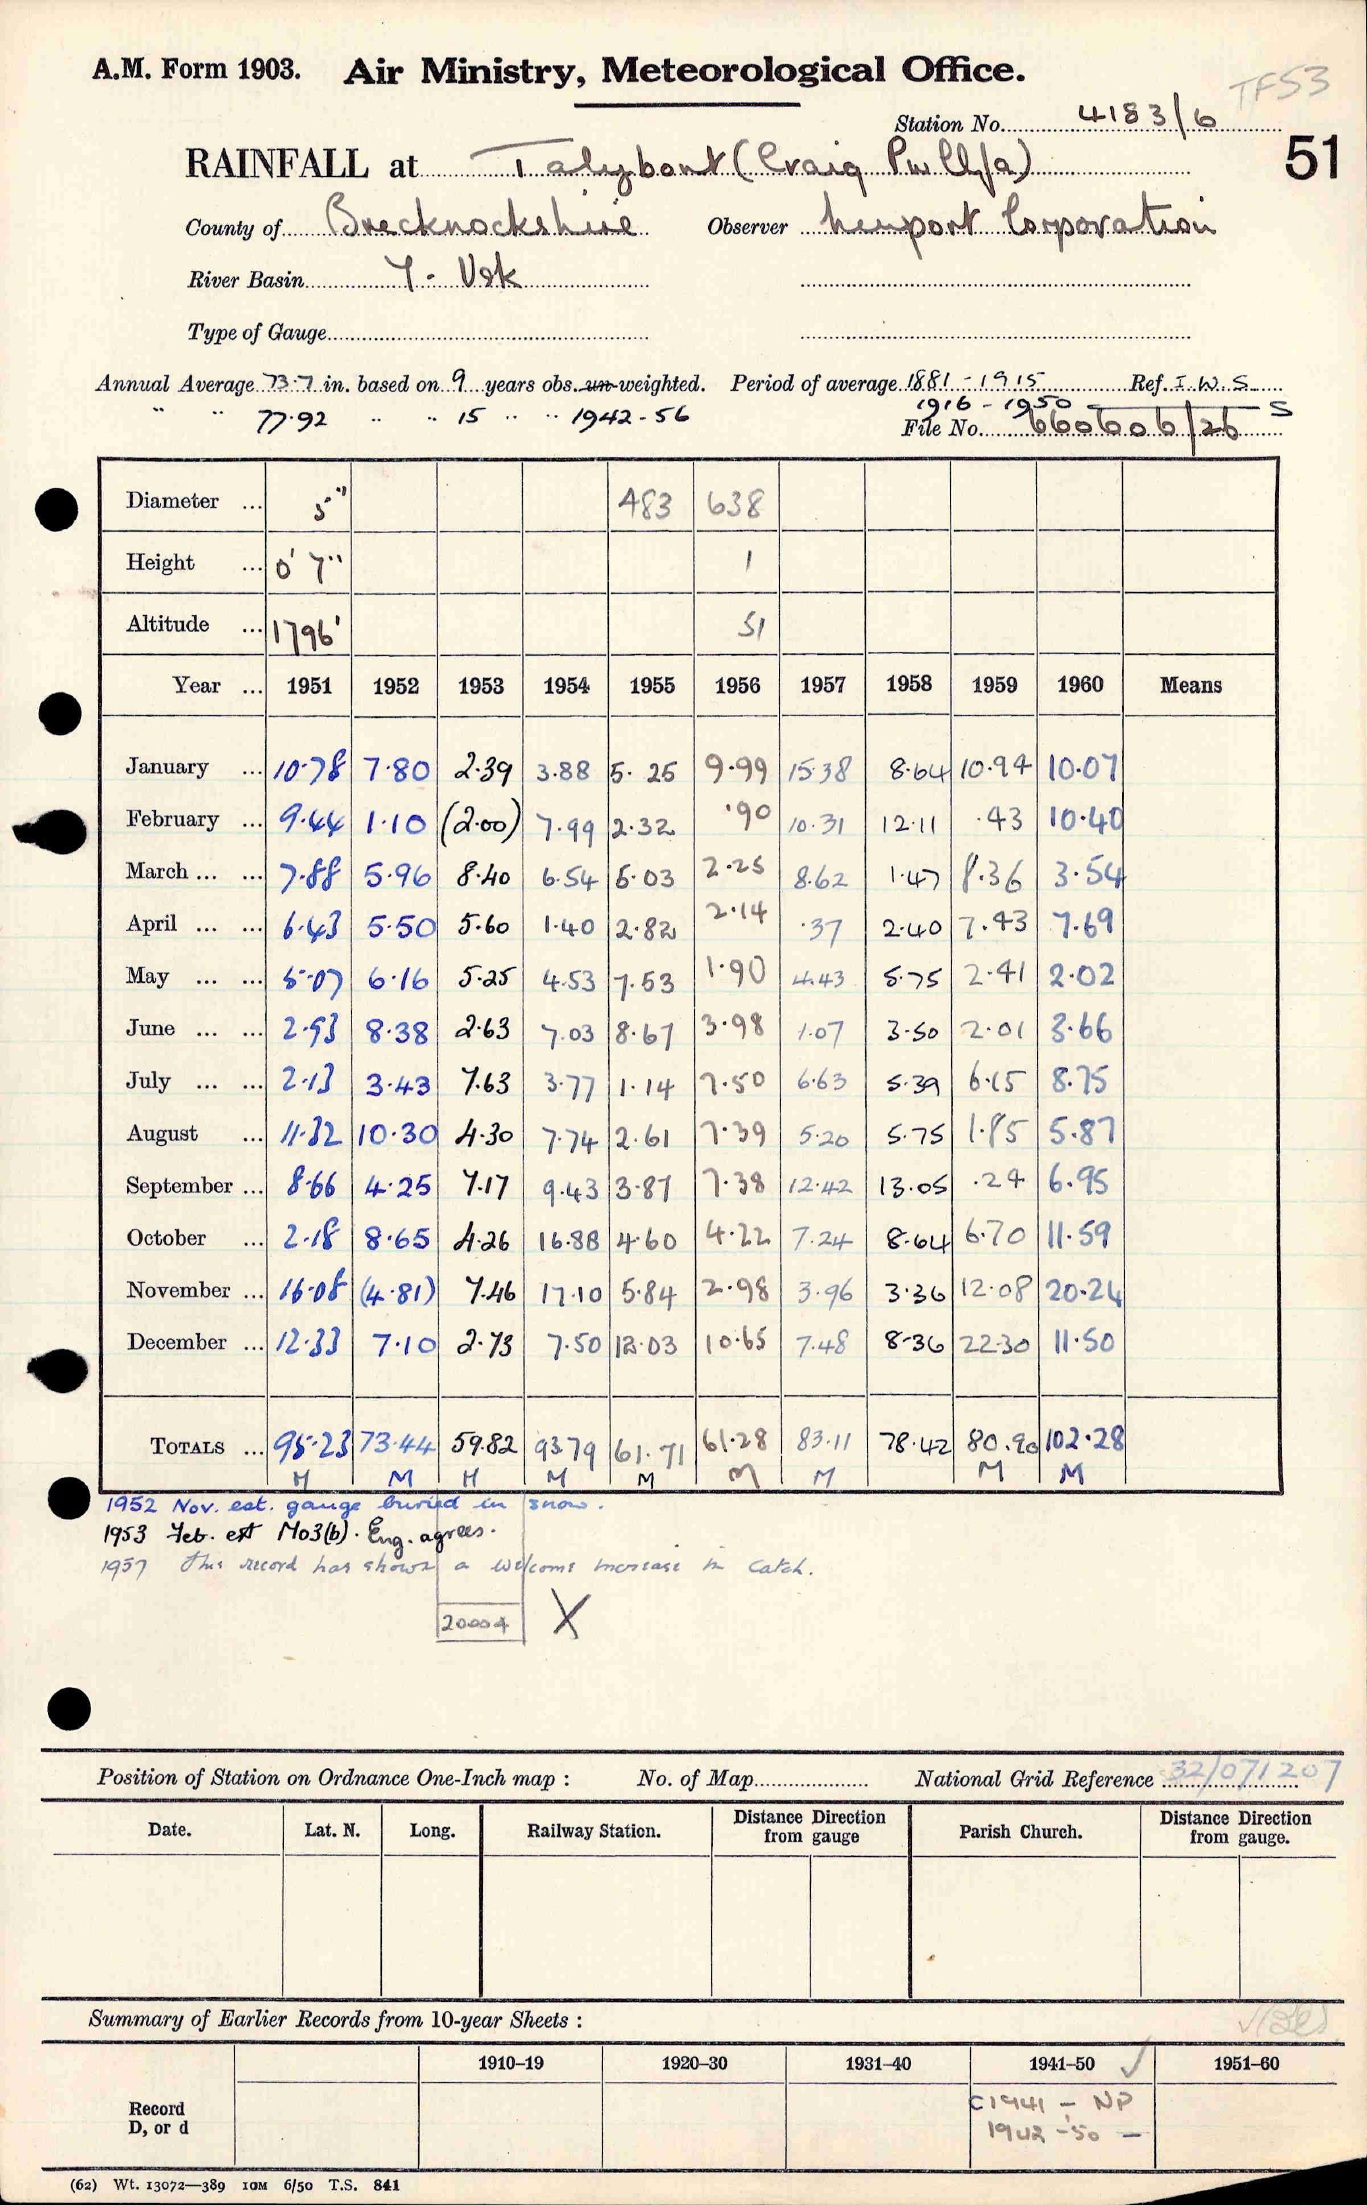 TF53
A.M. Form 1903. Air Ministry, Meteorological Office.
Station No. 4183/6
51
RAINFALL at Talybont (Craig Pwllfa)
County of Brecknockshire Observer Newport Corporation
River Basin 7 - Usk
Type of Gauge
Annual Average 73.7 in. based on 9 years obs. un-weighted. Period of average 1881 - 1915 Ref. I.W.S.
" " 77.92 " " 15 " " 1942-56 1916 - 1950 S
File No. 660606/26
Diameter ... 5" 483 638
Height ... 0' 7" 1
Altitude ... 1796' 51
Year ... 1951 1952 1953 1954 1955 1956 1957 1958 1959 1960 Means
January ... 10.78 7.80 2.39 3.88 5.25 9.99 15.38 8.64 10.94 10.07
February ... 9.44 1.10 (2.00) 7.99 2.32 .90 10.31 12.11 .43 10.40
March ... ... 7.88 5.96 8.40 6.54 5.03 2.25 8.62 1.47 8.36 3.54
April ... ... 6.43 5.50 5.60 1.40 2.82 2.14 .37 2.40 7.43 7.69
May ... ... 5.07 6.16 5.25 4.53 7.53 1.90 4.43 5.75 2.41 2.02
June ... ... 2.93 8.38 2.63 7.03 8.67 3.98 1.07 3.50 2.01 3.66
July ... ... 2.13 3.43 7.63 3.77 1.14 7.50 6.63 5.39 6.15 8.75
August ... 11.32 10.30 4.30 7.74 2.61 7.39 5.20 5.75 1.85 5.87
September ... 8.66 4.25 7.17 9.43 3.87 7.38 12.42 13.05 .24 6.95
October ... 2.18 8.65 4.26 16.88 4.60 4.22 7.24 8.64 6.70 11.59
November ... 16.08 (4.81) 7.46 17.10 5.84 2.98 3.96 3.36 12.08 20.24
December ... 12.33 7.10 2.73 7.50 12.03 10.65 7.48 8.36 22.30 11.50
TOTALS ... 95.23 73.44 59.82 93.79 61.71 61.28 83.11 78.42 80.90 102.28
M M M M M M M M M
1952 Nov. est. gauge buried in snow.
1953 Feb. est M03(b). Eng. agrees.
1957 This record has shown a welcome increase in catch.
20004 X
Position of Station on Ordnance One-Inch map : No. of Map National Grid Reference 32/071207
Date. Lat. N. Long. Railway Station. Distance from gauge Direction Parish Church. Distance from gauge. Direction
Summary of Earlier Records from 10-year Sheets :
1910-19 1920-30 1931-40 1941-50 ✓ 1951-60
Record D, or d
C1941 - NP
1942 - 50 -
(62) Wt. 13072—389 10M 6/50 T.S. 841